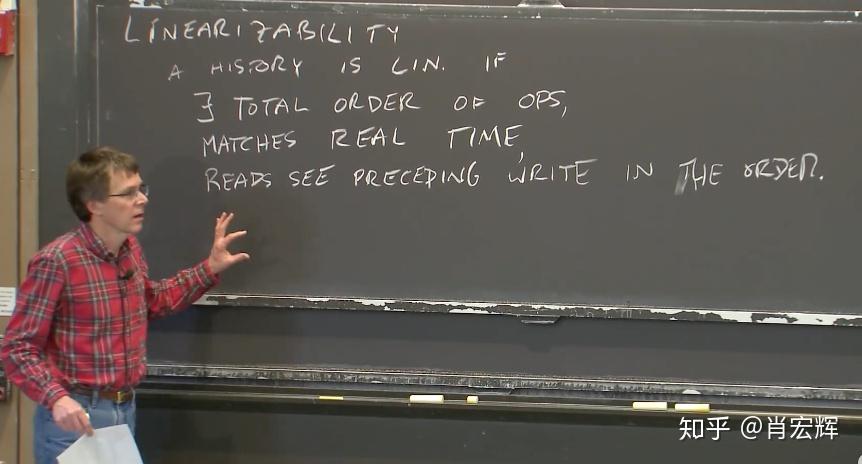 LINEARIZABILITY
A HISTORY IS LIN. IF
∃ TOTAL ORDER OF OPS,
MATCHES REAL TIME,
READS SEE PRECEDING WRITE IN THE ORDER.
知乎 @肖宏辉